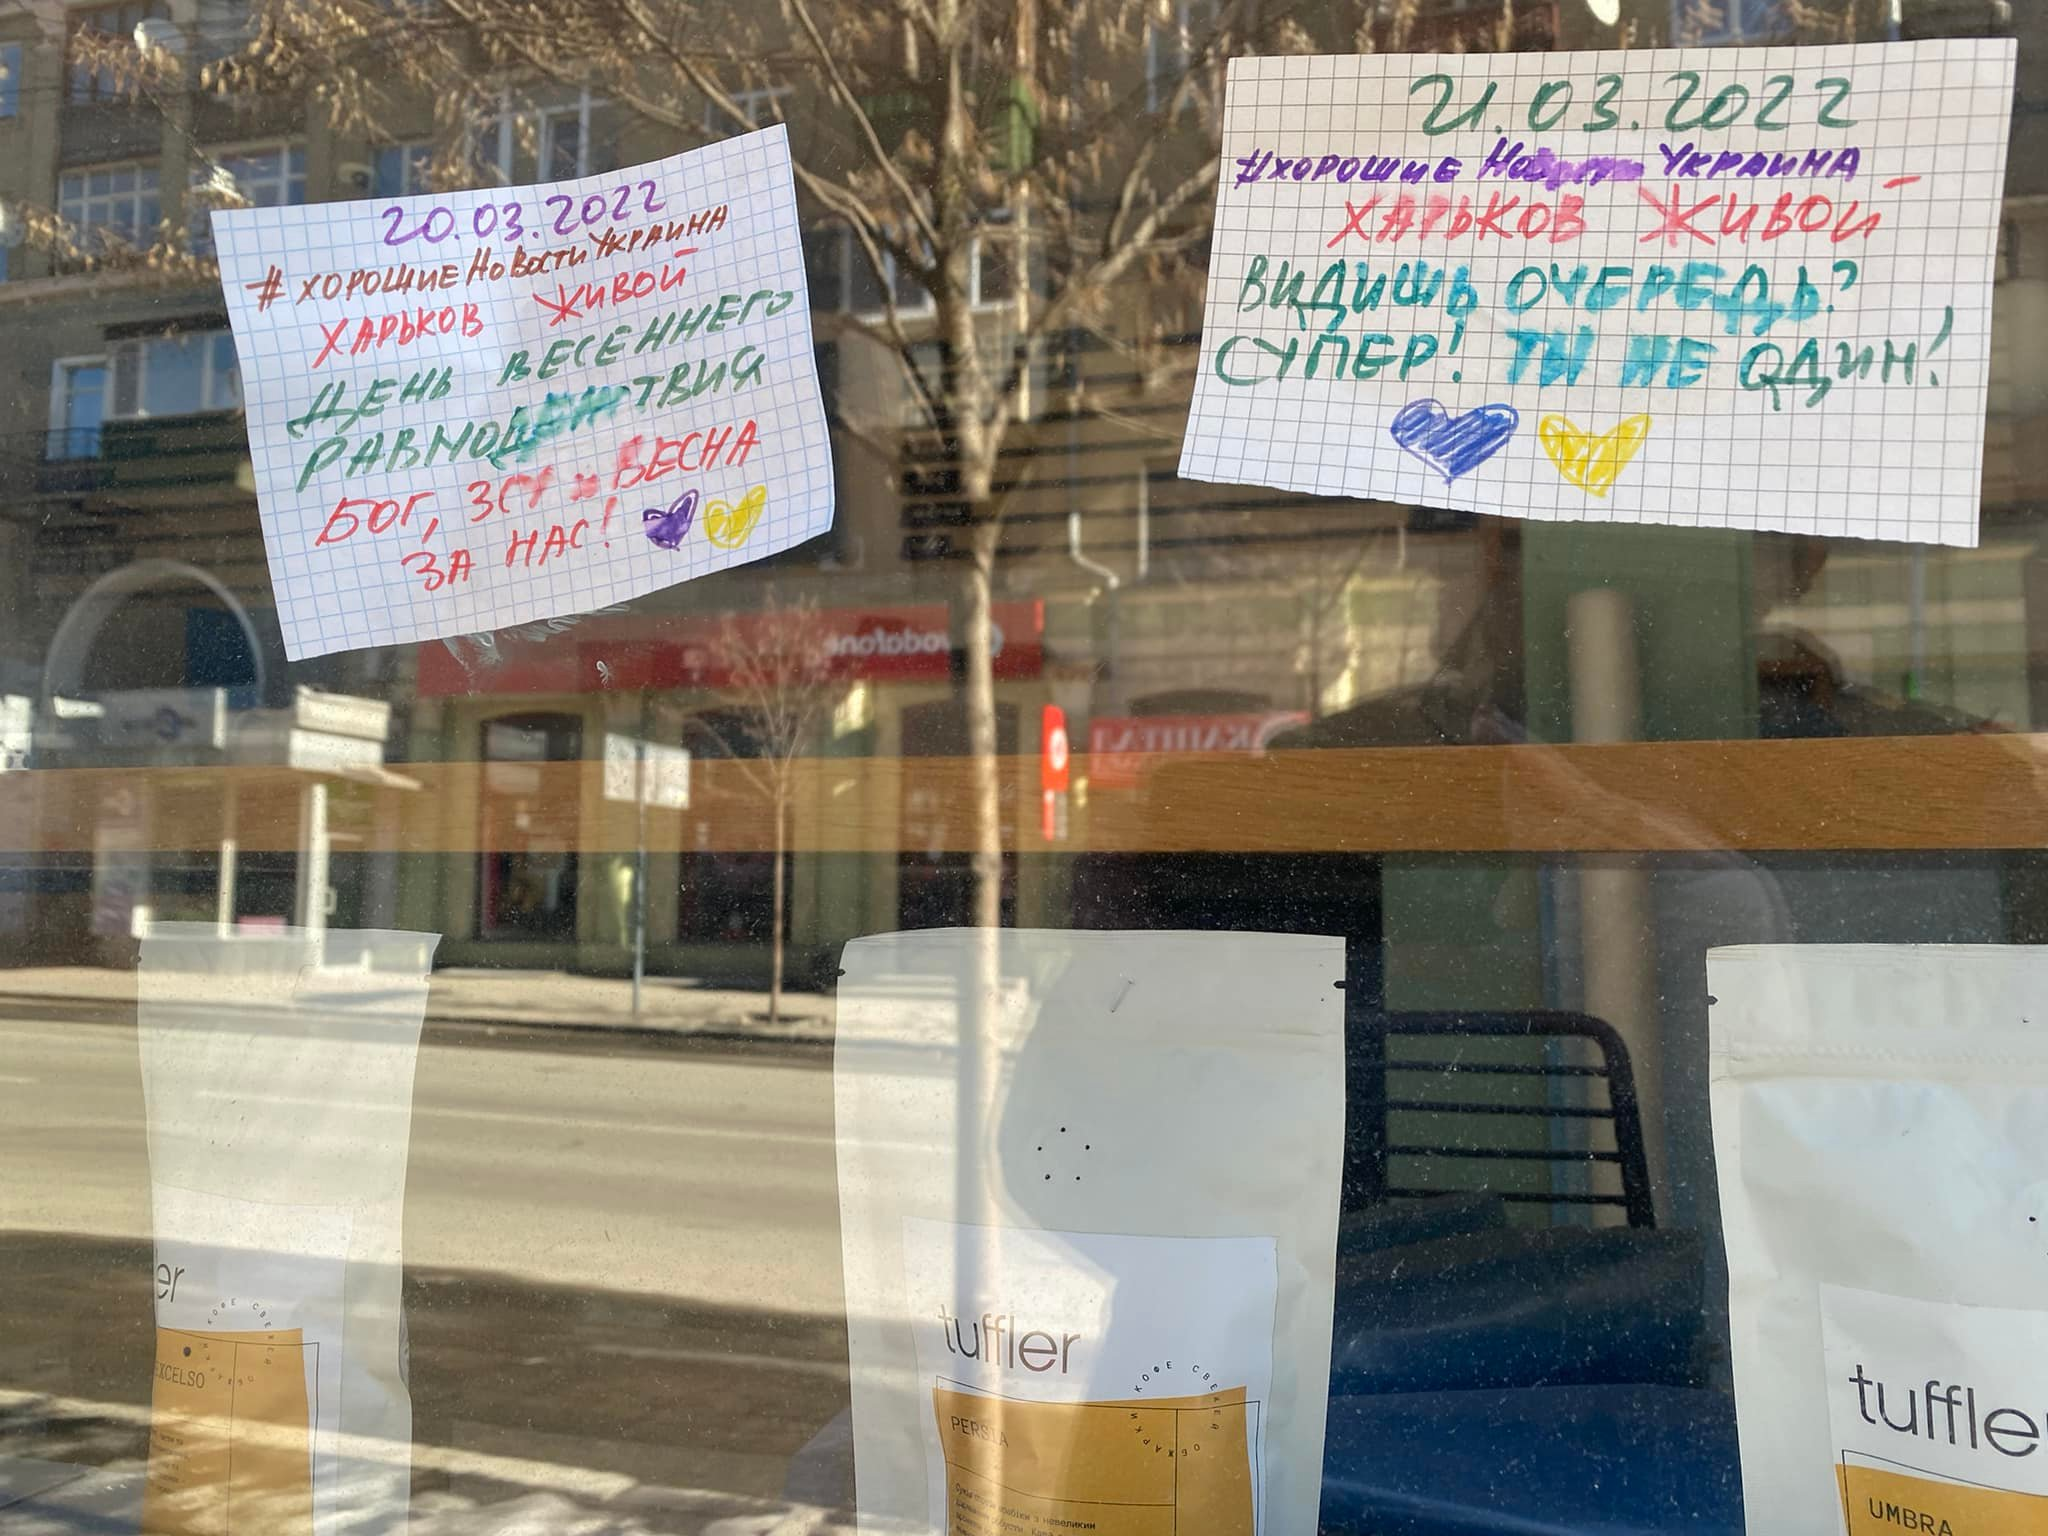 20.03.2022
#ХОРОШИЕНОВОСТИУКРАИНА
ХАРЬКОВ ЖИВОЙ
ДЕНЬ ВЕСЕННЕГО
РАВНОДЕНСТВИЯ
БОГ, ЗСУ и ВЕСНА
ЗА НАС!
21.03.2022
#ХОРОШИЕ НОВОСТИ УКРАИНА
ХАРЬКОВ ЖИВОЙ
ВИДИШЬ ОЧЕРЕДЬ?
СУПЕР! ТЫ НЕ ОДИН!
vodafone
КАПІТАЛ
er
КОФЕ СВЕЖЕЙ ОБЖАРКИ
EXCELSO
tuffler
КОФЕ СВЕЖЕЙ ОБЖАРКИ
PERSIA
з невеликим
tuffle
UMBRA